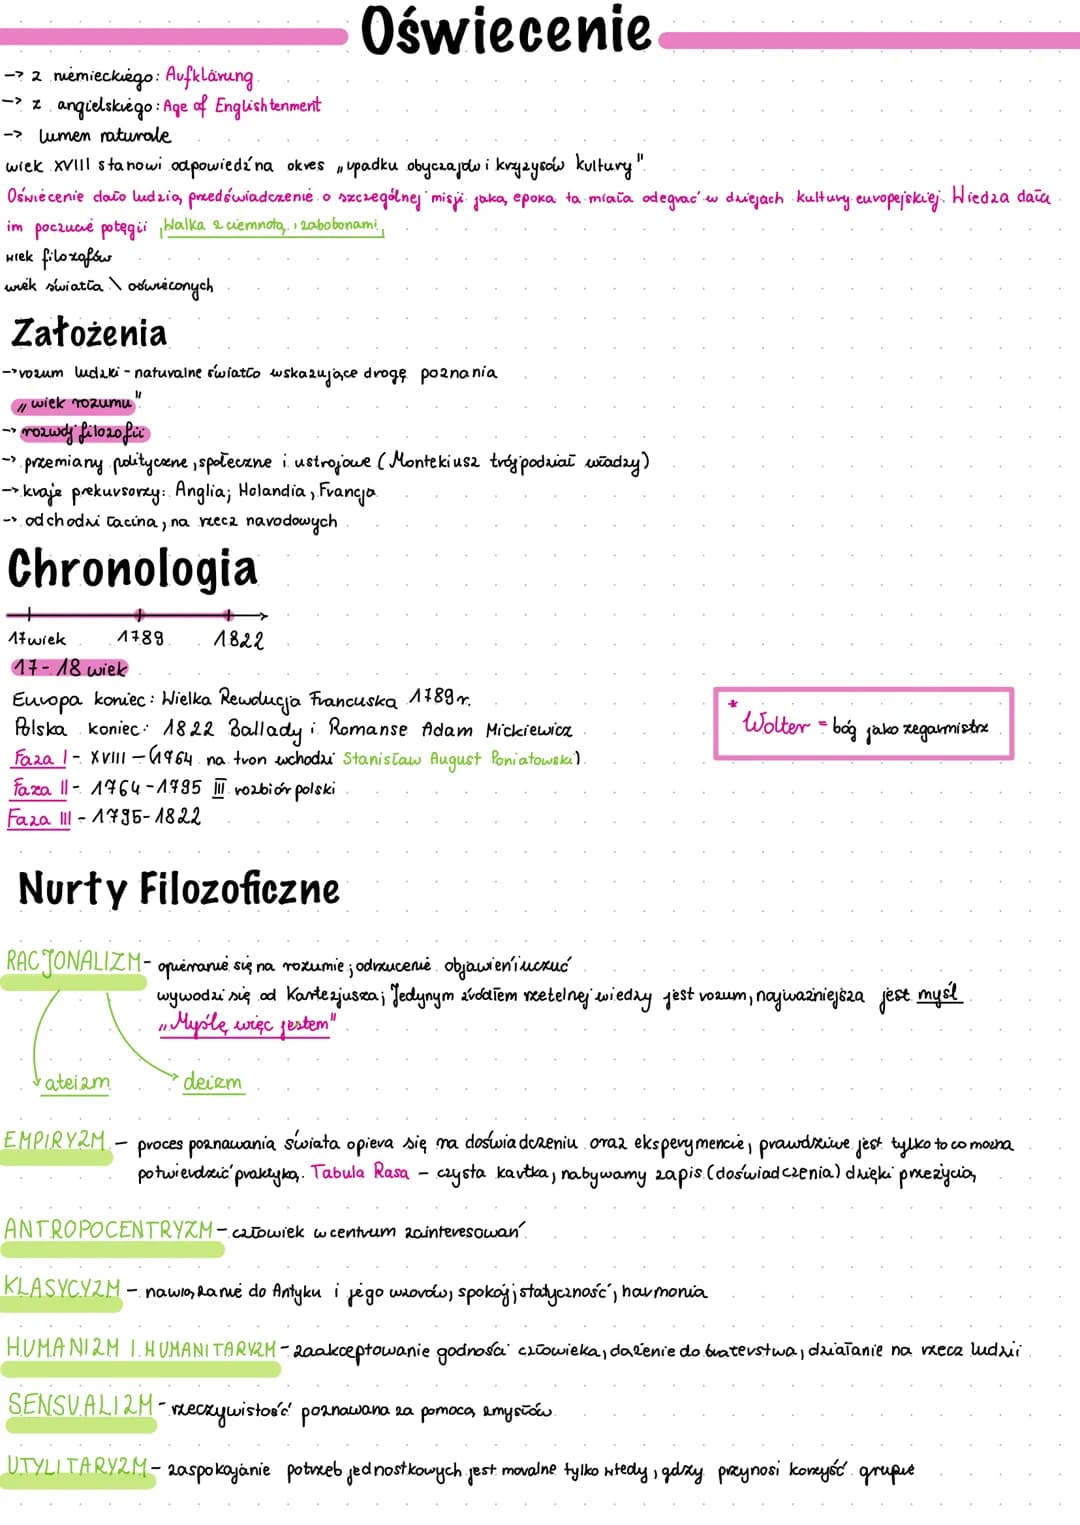 Oświecenie
-> z niemieckiego: Aufklärung
-> z angielskiego: Age of Englishtenment
-> lumen naturale
wiek XVIII stanowi odpowiedź na okres „upadku obyczajów i kryzysów kultury"
Oświecenie dało ludzią przedświadczenie o szczególnej misji jaką epoka ta miała odegrać w dziejach kultury europejskiej. Wiedza dała
im poczucie potęgii, Walka z ciemnotą i zabobonami,
wiek filozofów
wiek światła \ oświeconych
Założenia
-> rozum ludzki - naturalne światło wskazujące drogę poznania
„wiek rozumu"
-> rozwój filozofii
-> przemiany polityczne, społeczne i ustrojowe (Montekiusz trójpodział władzy)
-> kraje prekursorzy: Anglia; Holandia, Francja
-> odchodzi łacina, na rzecz narodowych
Chronologia
17wiek 1789 1822
17-18 wiek
Europa koniec: Wielka Rewolucja Francuska 1789r.
Polska koniec: 1822 Ballady i Romanse Adam Mickiewicz
* Wolter = bóg jako zegarmistrz
Faza I - XVIII - (1964 na tron wchodzi Stanisław August Poniatowski)
Faza II - 1764-1795 III rozbiór polski
Faza III - 1795-1822
Nurty Filozoficzne
RACJONALIZM - opieranie się na rozumie; odrzucenie objawień i uczuć
wywodzi się od Kartezjusza; Jedynym źródłem rzetelnej wiedzy jest rozum, najważniejsza jest myśl
„Myślę więc jestem"
ateizm deizm
EMPIRYZM - proces poznawania świata opiera się na doświadczeniu oraz eksperymencie, prawdziwe jest tylko to co można
potwierdzić praktyką. Tabula Rasa - czysta kartka, nabywamy zapis (doświadczenia) dzięki przeżycią
ANTROPOCENTRYZM - człowiek w centrum zainteresowań
KLASYCYZM - nawiązanie do Antyku i jego wzorów, spokój, statyczność, harmonia
HUMANIZM I HUMANITARYZM - zaakceptowanie godności człowieka, dążenie do braterstwa, działanie na rzecz ludzi
SENSUALIZM - rzeczywistość poznawana za pomocą zmysłów
UTYLITARYZM - zaspokajanie potrzeb jednostkowych jest moralne tylko wtedy, gdzy przynosi korzyść grupie